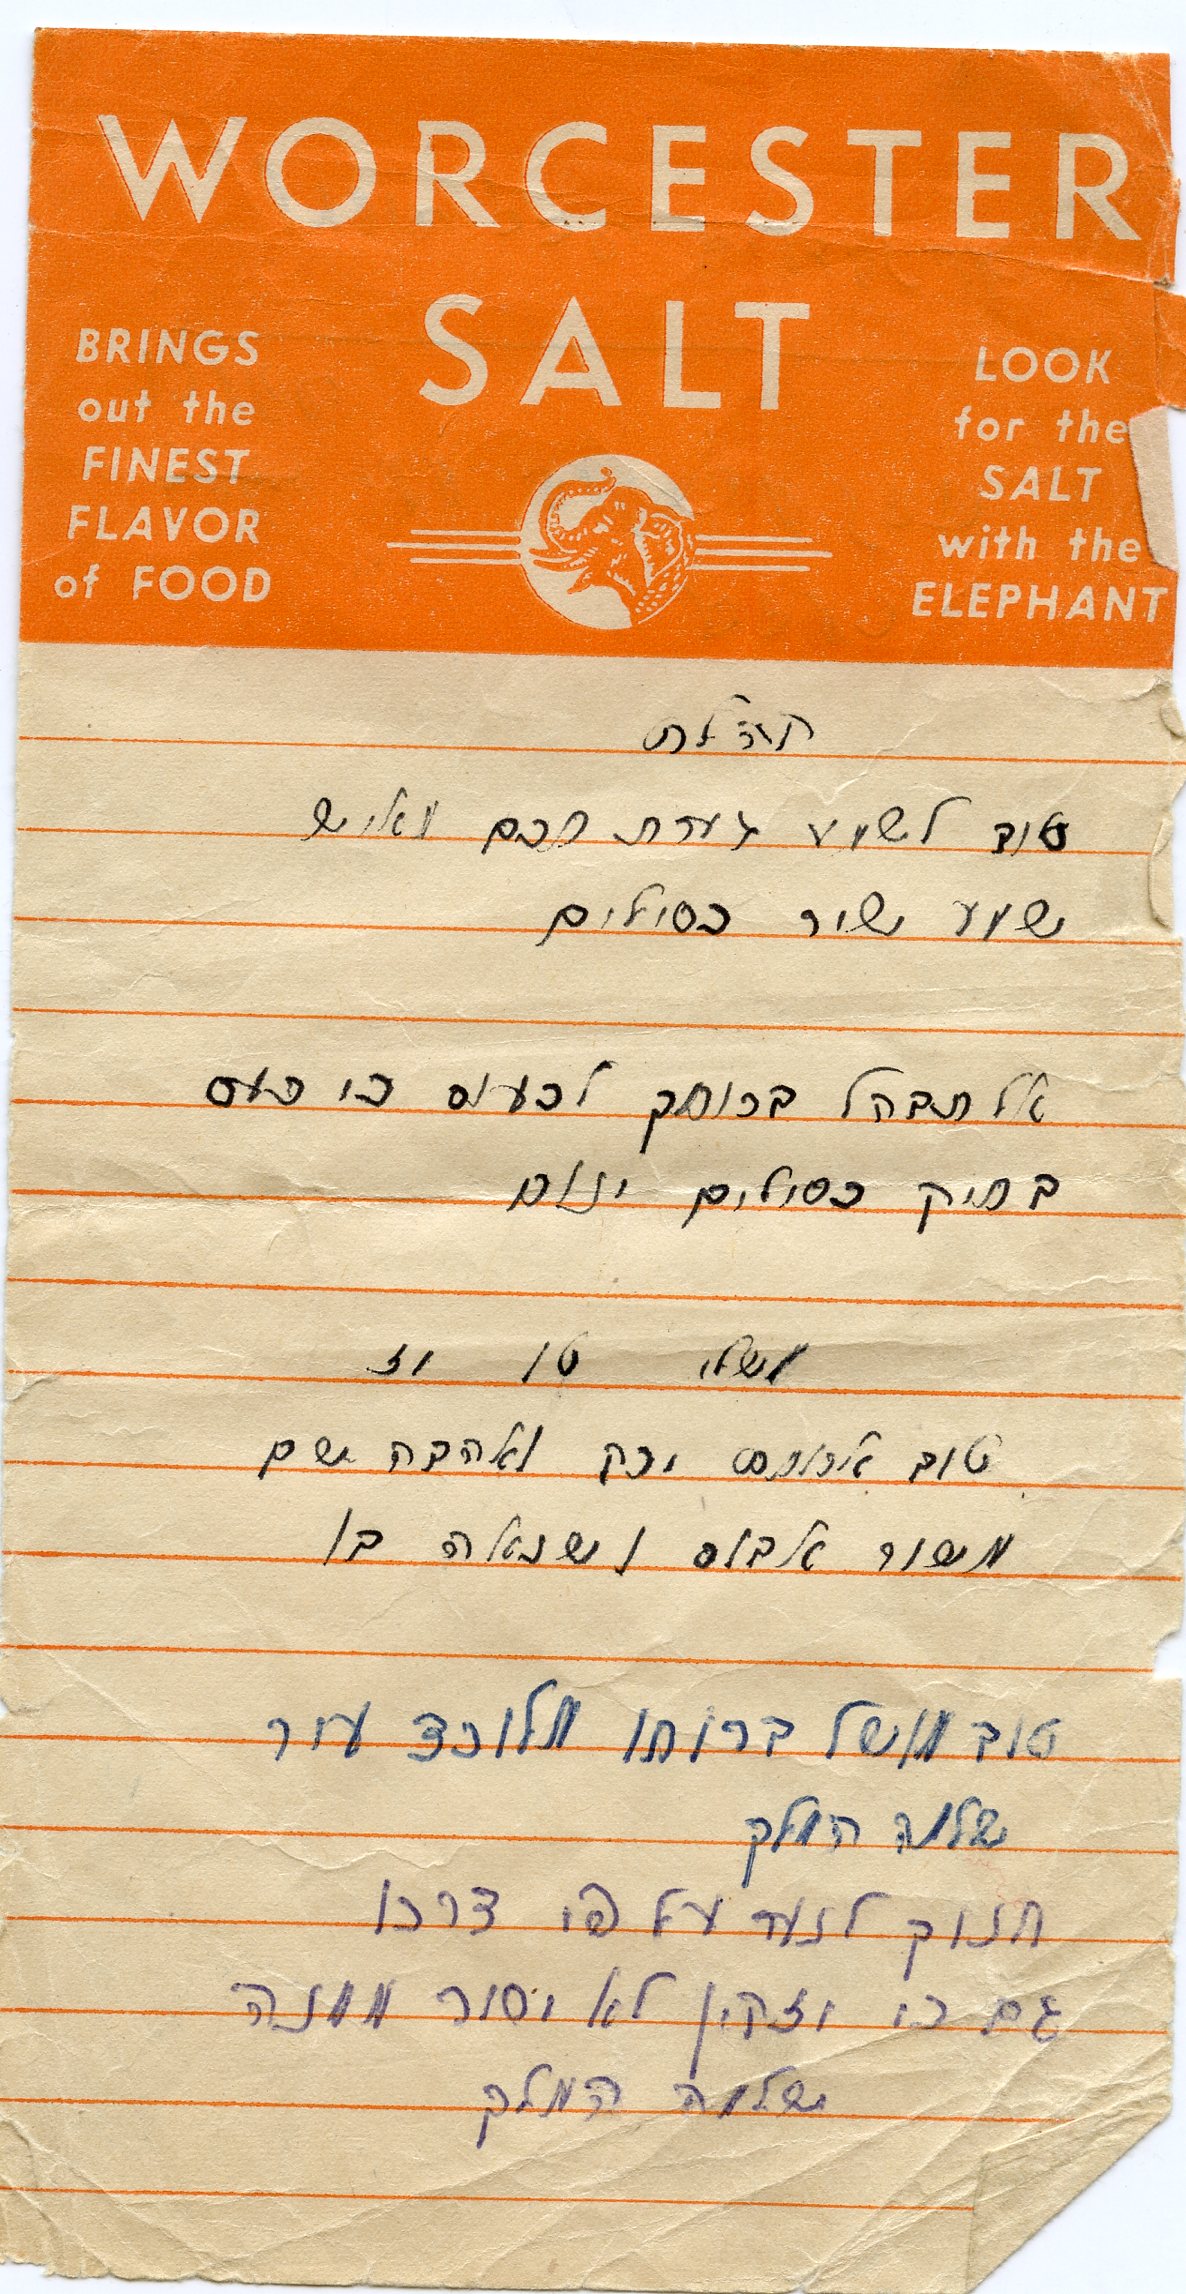 WORCESTER
SALT
BRINGS
out the
FINEST
FLAVOR
of FOOD
LOOK
for the
SALT
with the
ELEPHANT
קהלת
טוב לשמע גערת חכם מאיש
שמע שיר כסילים
אל תבהל ברוחך לכעוס כי כעס
בחיק כסילים ינוח
משלי טו יז
טוב ארוחת ירק ואהבה שם
משור אבוס ושנאה בו
טוב מושל ברוחו מלוכד עיר
שלמה המלך
חנוך לנער על פי דרכו
גם כי יזקין לא יסור ממנה
שלמה המלך